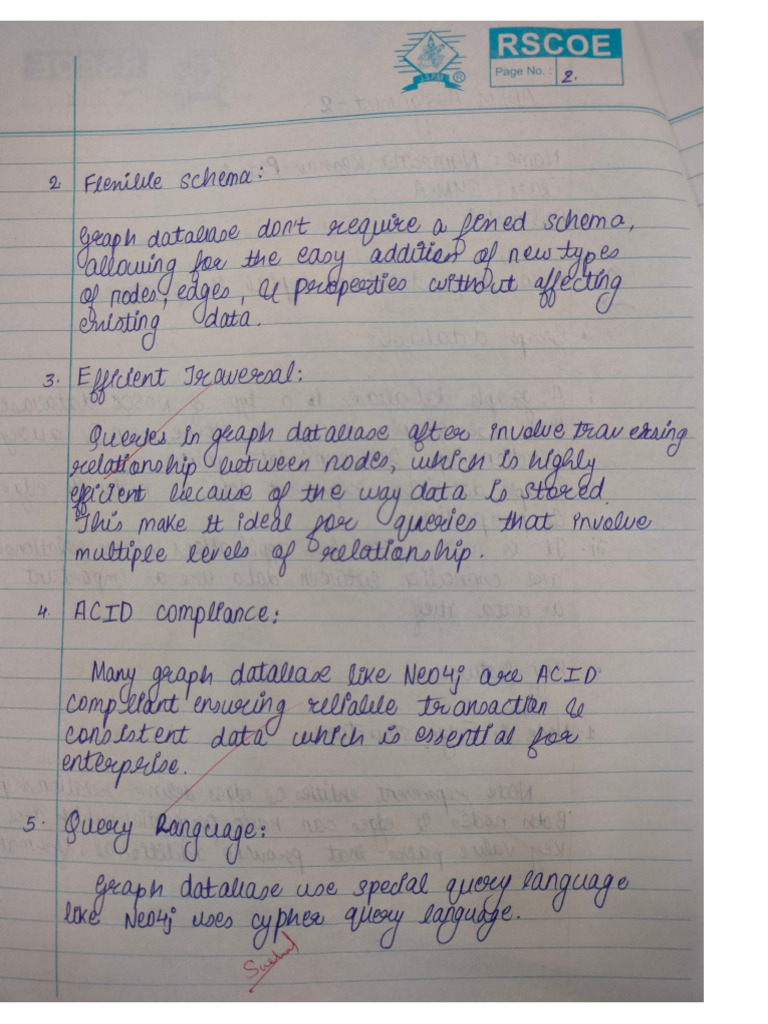 RSCOE
Page No. : 2.
2. Flexible schema:
Graph database don't require a fixed schema,
allowing for the easy addition of new types
of nodes, edges, & properties without affecting
existing data.
3. Efficient Traversal:
Queries in graph database often involve traversing
relationship between nodes, which is highly
efficient because of the way data is stored.
This make it ideal for queries that involve
multiple levels of relationship.
4. ACID compliance:
Many graph database like Neo4j are ACID
compliant ensuring reliable transaction &
consistent data which is essential for
enterprise.
5. Query Language:
Graph database use special query language
like Neo4j uses cypher query language.